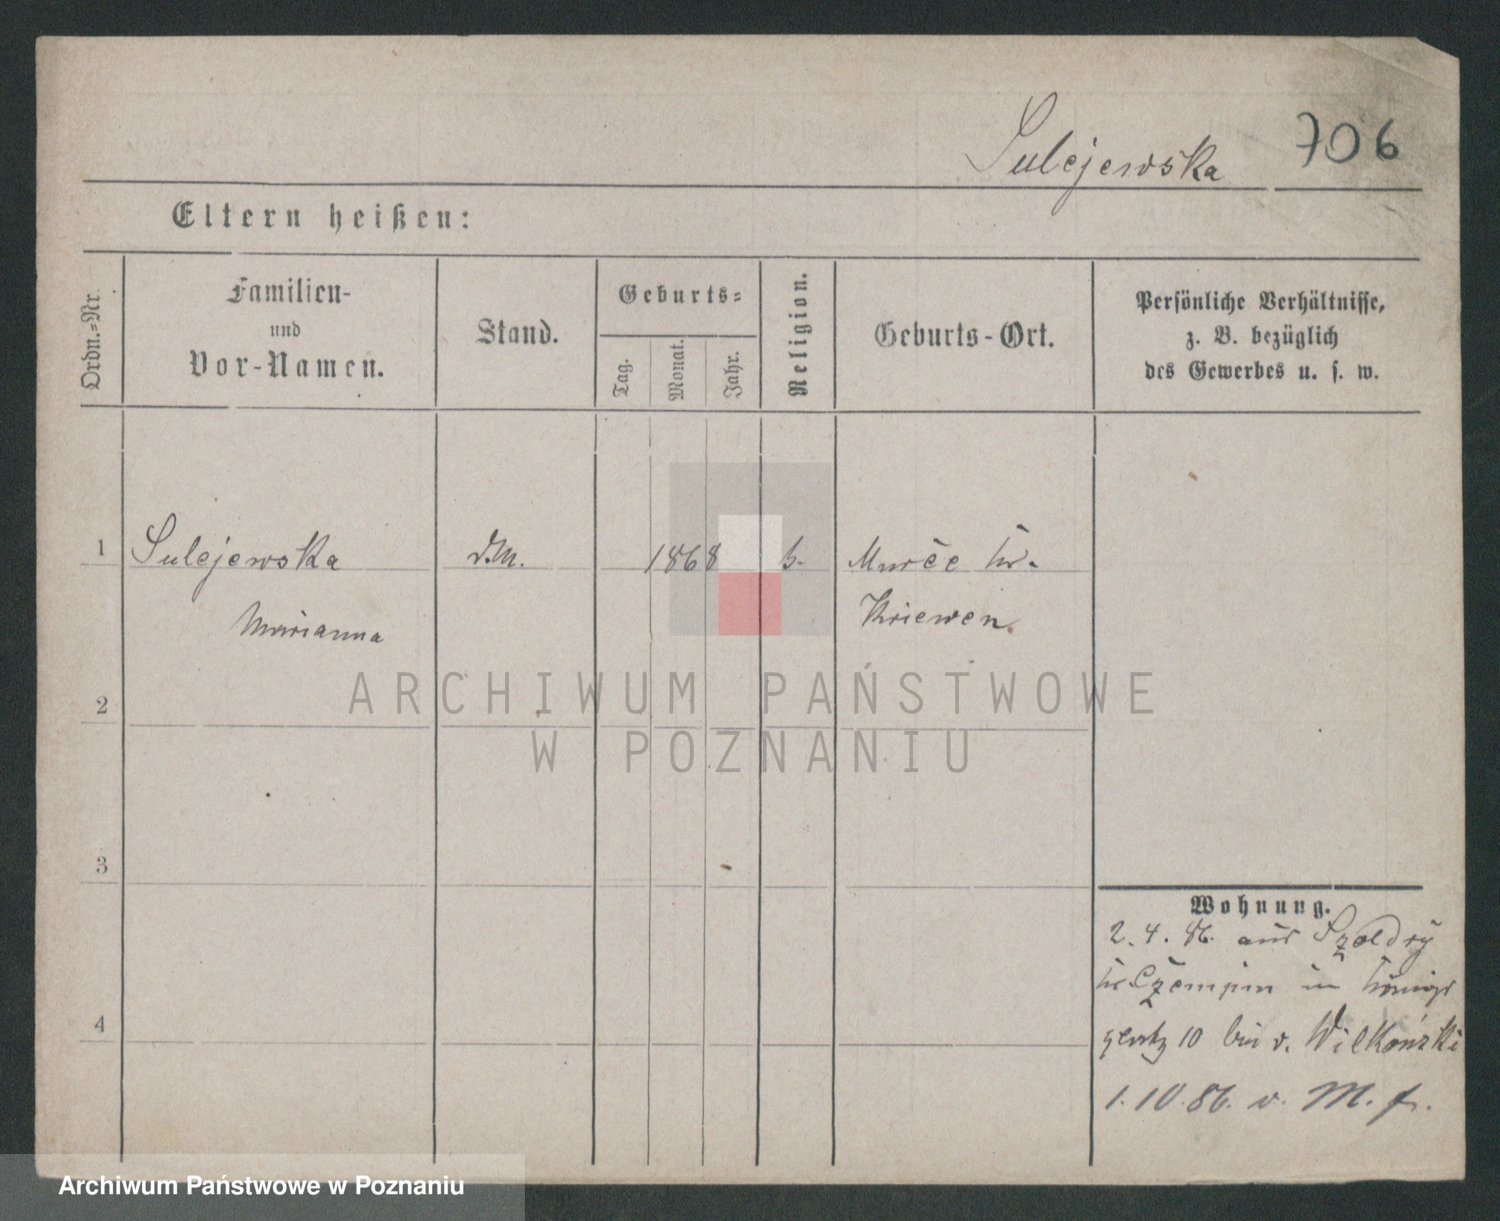 Sulejewska 706
Eltern heißen:
Ordn.=Nr.
Familien-
und
Vor-Namen.
Stand.
Geburts=
Tag.
Monat.
Jahr.
Religion.
Geburts-Ort.
Persönliche Verhältnisse,
z. B. bezüglich
des Gewerbes u. s. w.
1 Sulejewska 1868 Kr.
Marianna Kriewen
2
ARCHIWUM PAŃSTWOWE
W POZNANIU
3
4
Wohnung.
2. 4. 86. aus Szoldry
Kr. Czempin in Königs
platz 10 bei v. Wilkoński
1. 10. 86. v. M. f.
Archiwum Państwowe w Poznaniu